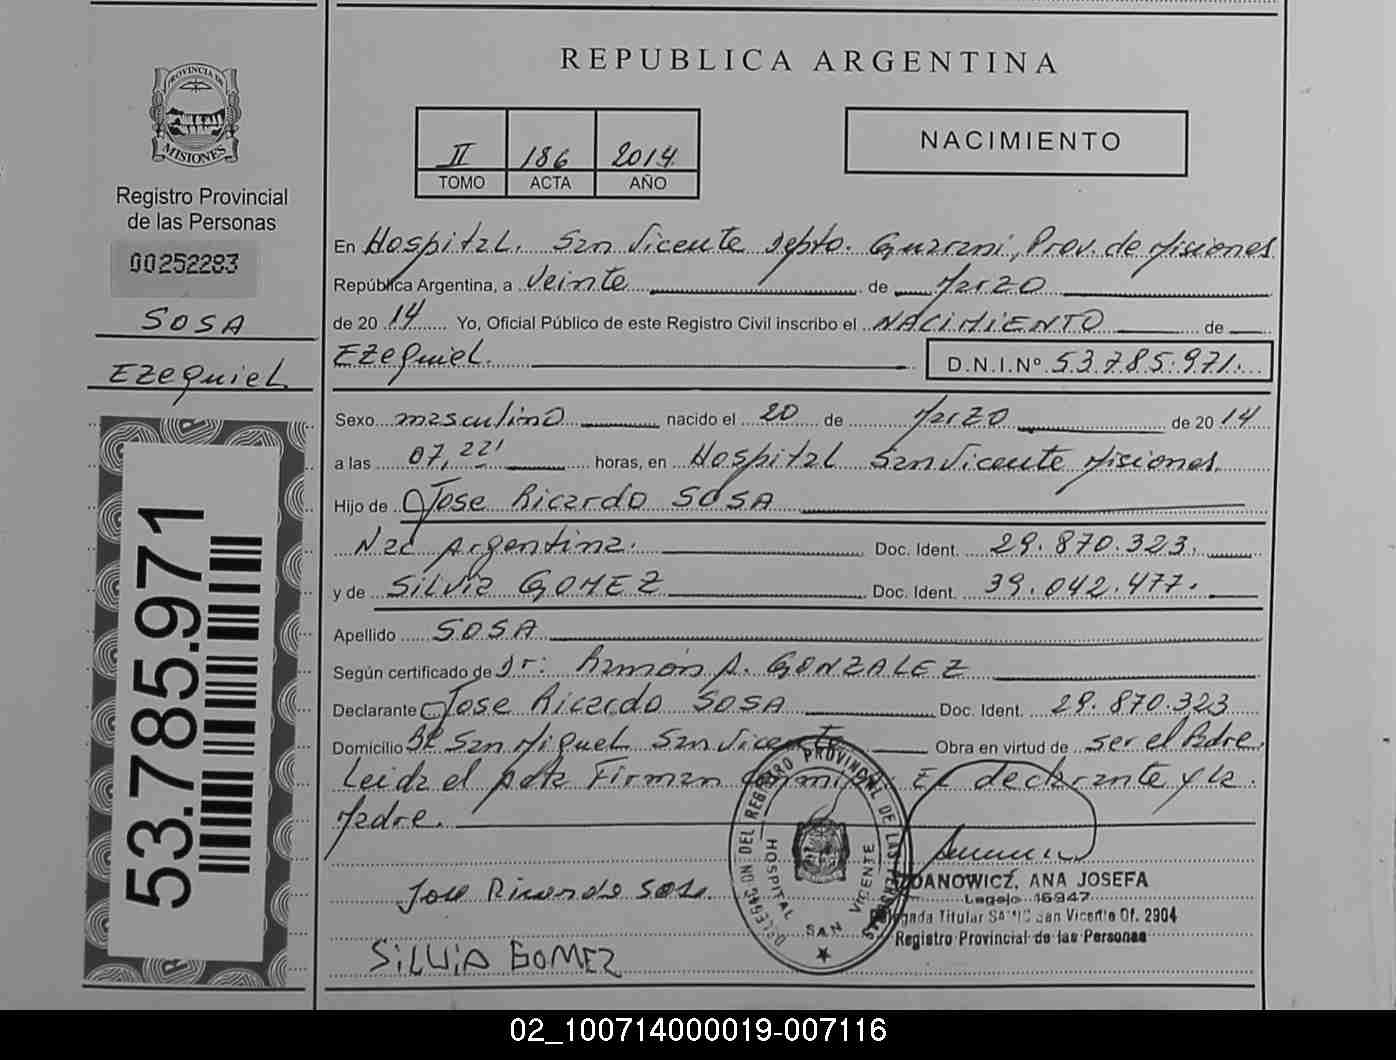 PROVINCIA DE
MISIONES
Registro Provincial
de las Personas
00252283
SOSA
Ezequiel
53.785.971
REPUBLICA ARGENTINA
II 186 2014
TOMO ACTA AÑO
NACIMIENTO
En Hospital. San Vicente Depto. Guarani, Prov. de Misiones
República Argentina, a Veinte de Marzo
de 20 14 Yo, Oficial Público de este Registro Civil inscribo el NACIMIENTO de
Ezequiel. D.N.I.Nº 53.785.971.
Sexo masculino nacido el 20 de Marzo de 20 14
a las 07,22' horas, en Hospital San Vicente Misiones.
Hijo de Jose Ricardo SOSA
Nac Argentina. Doc. Ident. 29.870.323.
y de Silvia GOMEZ Doc. Ident. 39.042.477.
Apellido SOSA
Según certificado de Dr: Ramón A. GONZALEZ
Declarante Jose Ricardo SOSA Doc. Ident. 29.870.323
Domicilio Bº San Miguel San Vicente Obra en virtud de ser el Padre.
Leida el Acta Firman Conmigo El declarante y la
Madre.
Jose Ricardo Sosa.
SiLViA GOMEZ
DELEGACION DEL REGISTRO PROVINCIAL DE LAS PERSONAS
HOSPITAL SAN VICENTE
ZDANOWICZ, ANA JOSEFA
Legajo 16947
Delegada Titular SAMIC San Vicente Of. 2904
Registro Provincial de las Personas
02_100714000019-007116